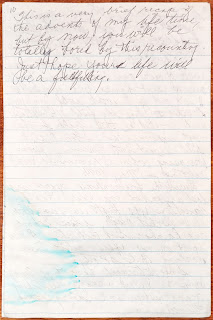 This is a very brief recap of
the advent of my life time,
but by now, you will be
totally bored by this recounting
Just hope your life will
be a